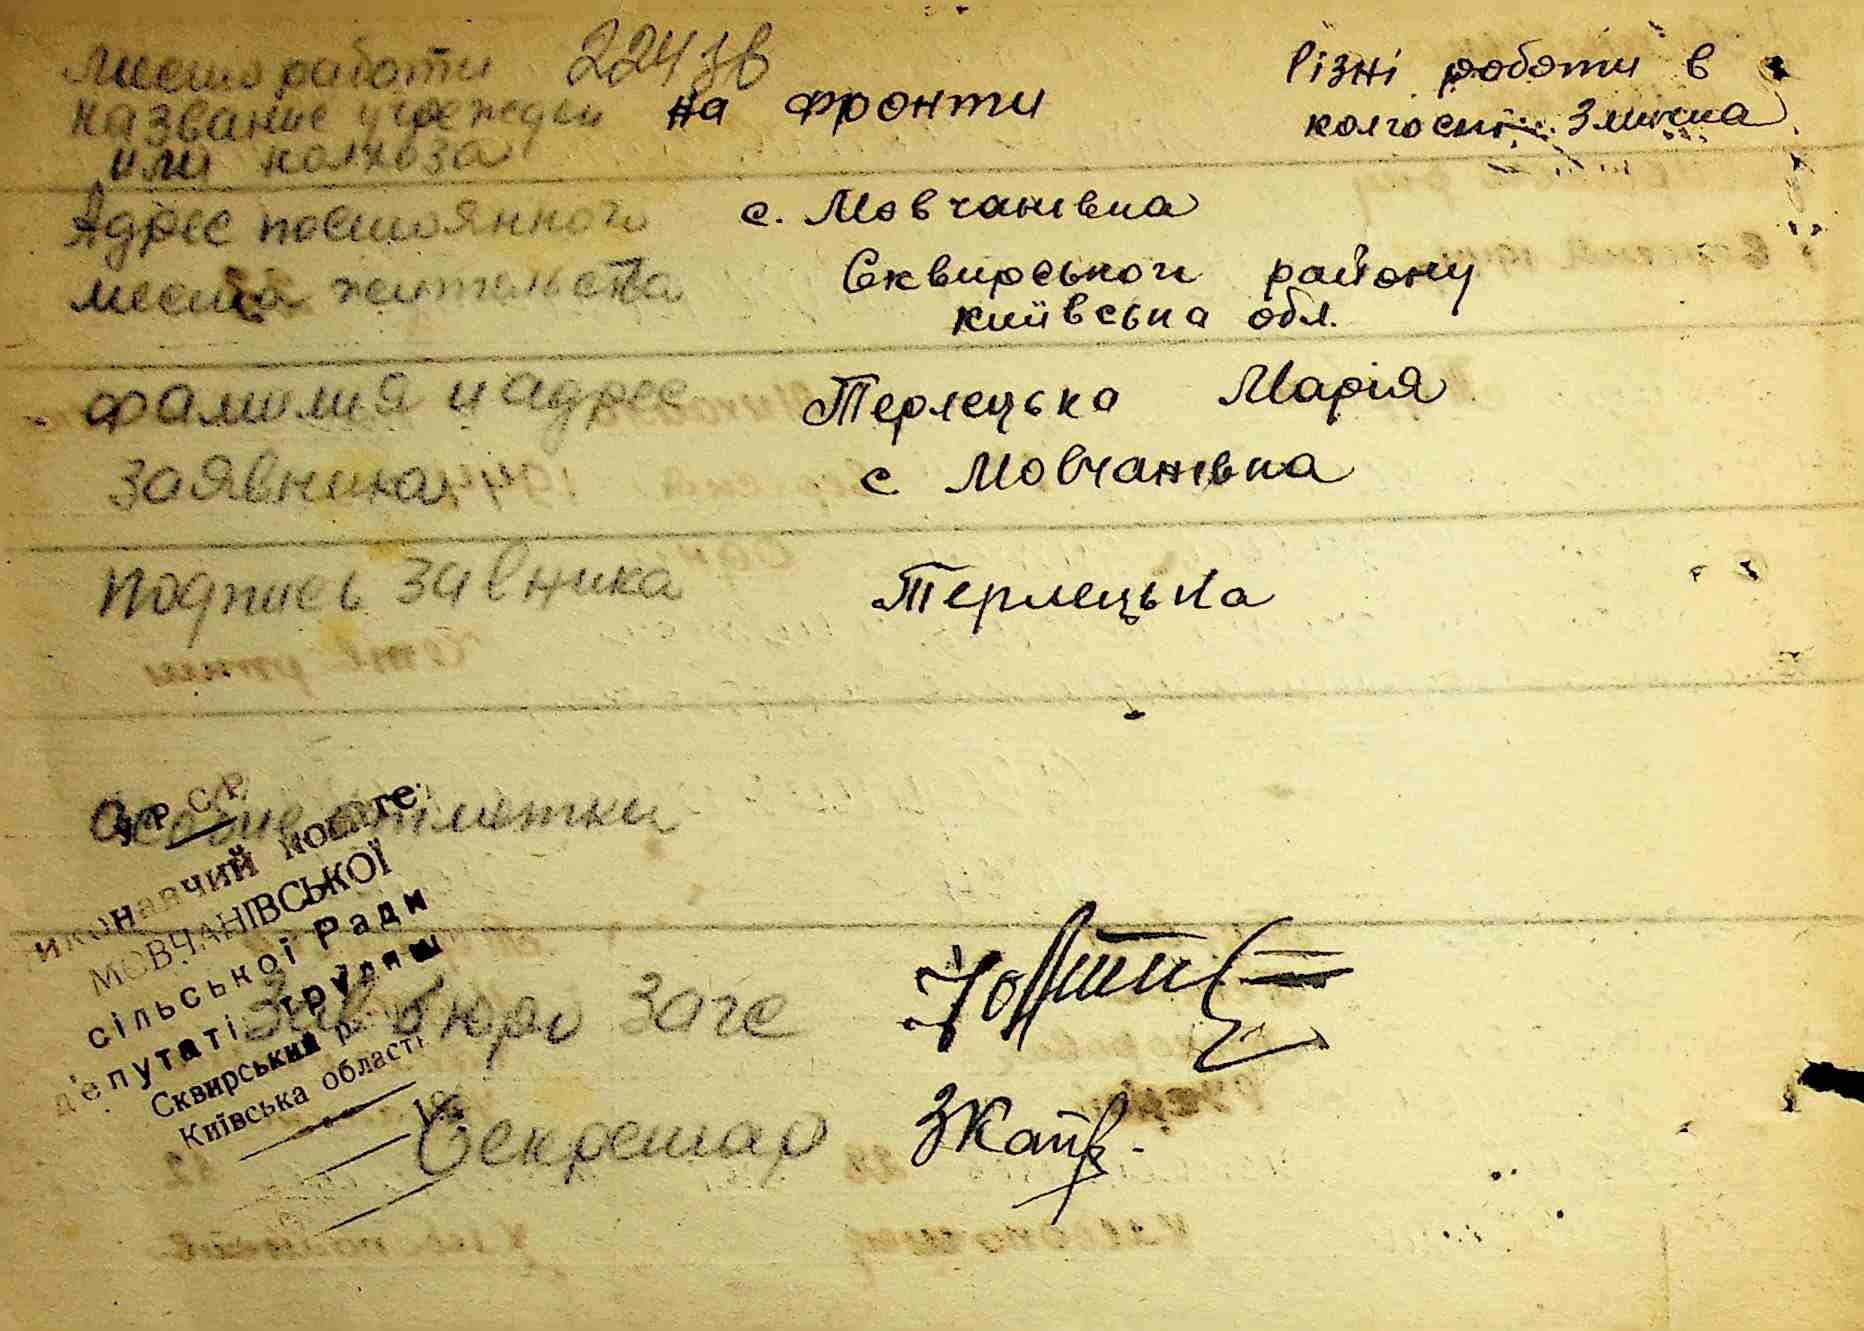 Место работи 224 зв
название учрежден на фронти Різні роботи в
или колхоза колгоспі Змичка
Адрес постоянного с. Мовчанівка
места жительства Сквирського району
київська обл.
фамилия и адрес Терлецька Марія
заявника с. Мовчанівка
Подпись заявника Терлецька
Особие отметки
УРСР
иконавчий комітет
МОВЧАНІВСЬКОЇ
сільської Ради
депутатів трудящ
Сквирський р
Київська область
19
Зав бюро Загс
Секретар